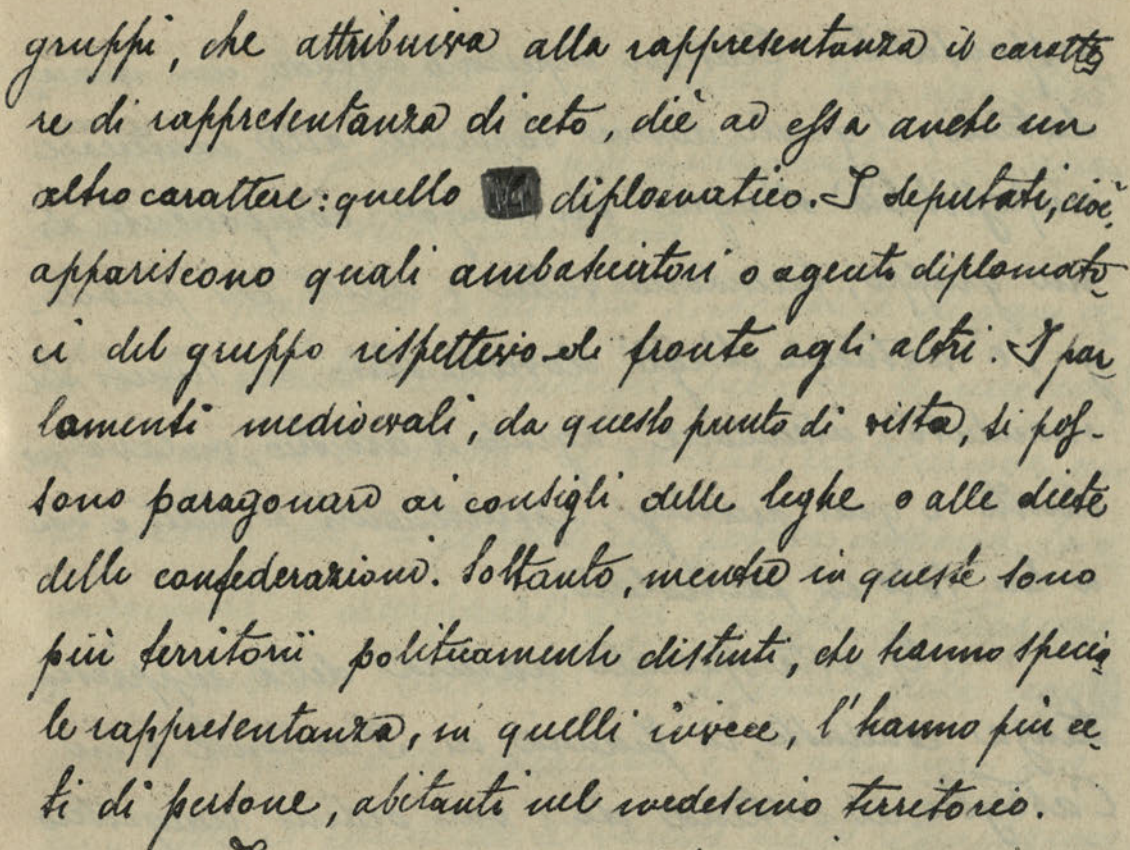 gruppi, che attribuiva alla rappresentanza il caratte-
re di rappresentanza di ceto, diè ad essa anche un
altro carattere: quello diplomatico. I deputati, cioè,
appariscono quali ambasciatori o agenti diplomati-
ci del gruppo rispettivo di fronte agli altri. I par-
lamenti medioevali, da questo punto di vista, si pos-
sono paragonare ai consigli delle leghe o alle diete
delle confederazioni. Soltanto, mentre in queste sono
più territorii politicamente distinti, che hanno specia-
le rappresentanza, in quelli invece, l'hanno più ce-
ti di persone, abitanti nel medesimo territorio.